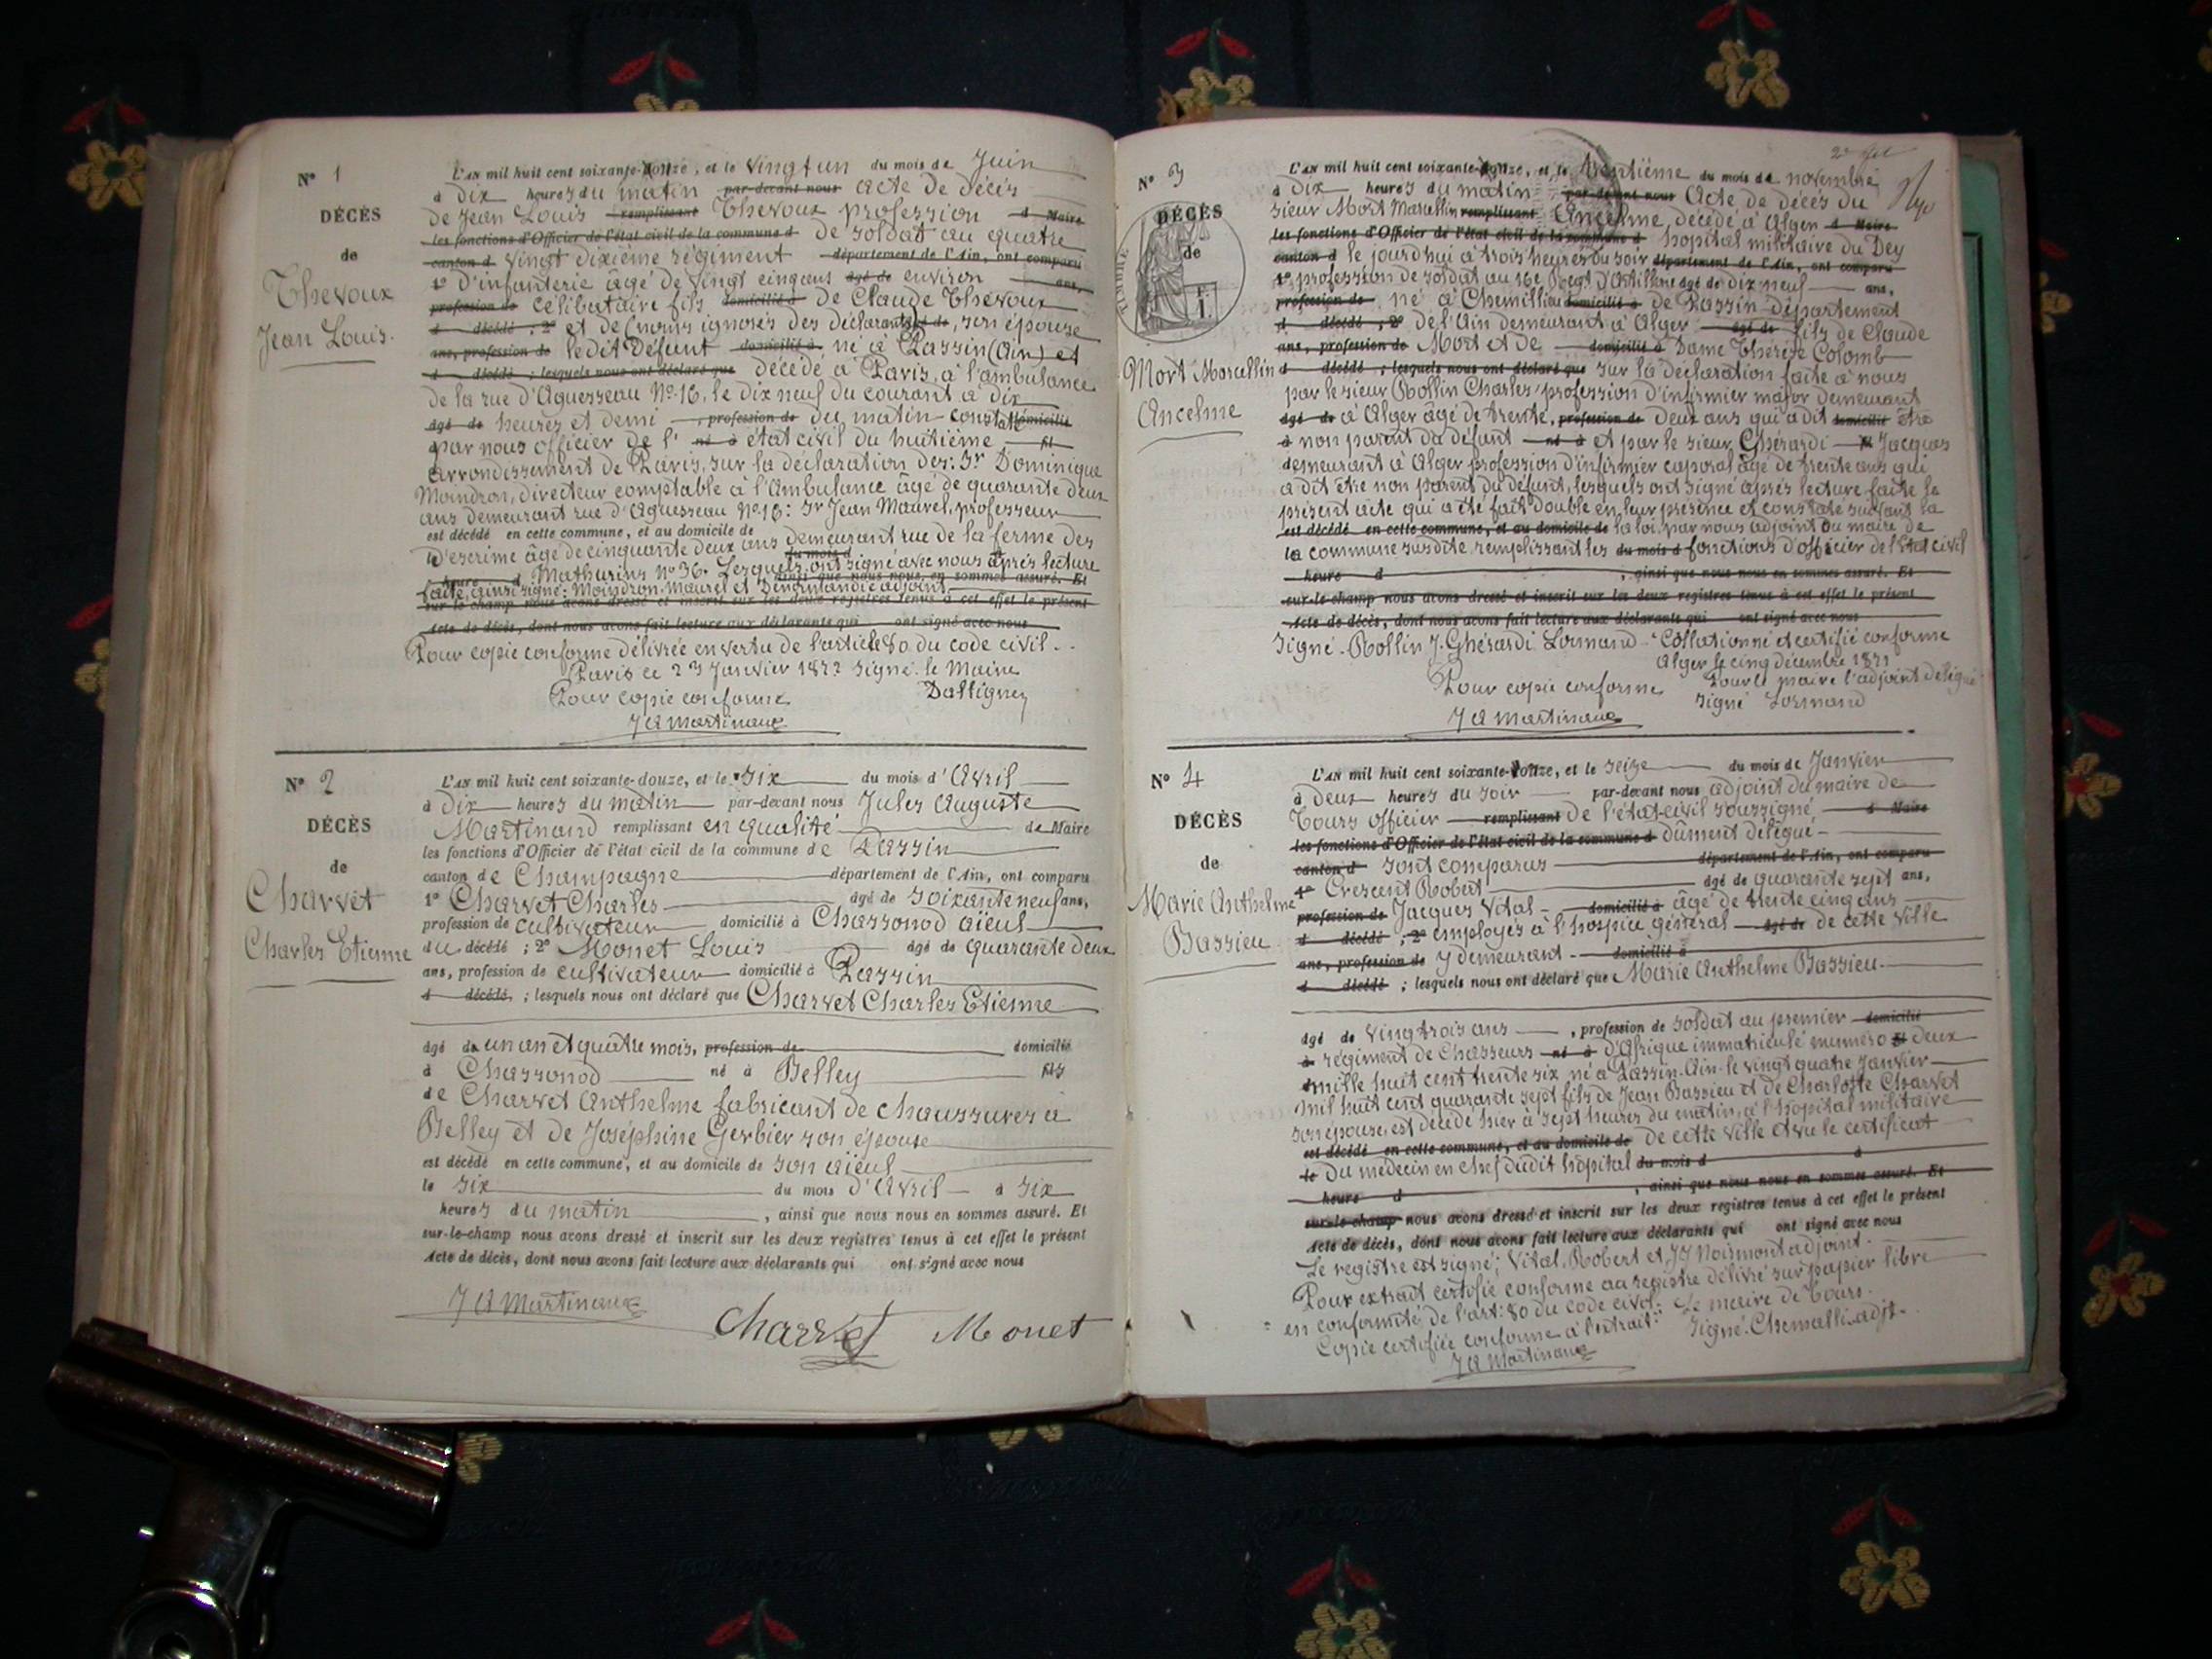 N° 1
DÉCÈS
de
Thevoux
Jean Louis.
L'AN mil huit cent soixante-onze, et le vingt un du mois de Juin
à dix heures du matin par-devant nous acte de décès
de Jean Louis remplissant Thevoux profession d Maire
les fonctions d'Officier de l'état civil de la commune d de soldat au quatre
canton d vingt dixième régiment département de l'Ain, ont comparu
1° d'infanterie âgé de vingt cinq ans âgé de environ ans,
profession de célibataire fils domicilié à de Claude Thevoux
d décédé ; 2° et de (noms ignorés des déclarants) âgé de, son épouse
ans, profession de ledit défunt domicilié à né à Passin (Ain) et
d décédé ; lesquels nous ont déclaré que décédé à Paris, à l'ambulance
de la rue d'Aguesseau N°. 16, le dix neuf du courant à dix
âgé de heures et demi , profession de du matin constaté domicilié
par nous officier de l' né à état civil du huitième fil
arrondissement de Paris, sur la déclaration des: Sr Dominique
Moindron, directeur comptable à l'Ambulance âgé de quarante deux
ans demeurant rue d'Aguesseau N°. 16: Sr Jean Maurel, professeur
est décédé en cette commune, et au domicile de
d'escrime âgé de cinquante deux ans demeurant rue de la ferme des
du mois d
heure d Mathurins n° 36. Lesquels ont signé avec nous après lecture
ainsi que nous nous en sommes assuré. Et
faite, ainsi signé: Moindron. Maurel et Denormandie adjoint.
sur-le-champ nous avons dressé et inscrit sur les deux registres tenus à cet effet le présent
Acte de décès, dont nous avons fait lecture aux déclarants qui ont signé avec nous
Pour copie conforme délivrée en vertu de l'article 80 du code civil.
Paris ce 23 Janvier 1872 signé. le Maire
Pour copie conforme
J A Martinand
N° 2
DÉCÈS
de
Charvet
Charles Etienne
L'AN mil huit cent soixante-douze, et le six du mois d'Avril
à dix heures du matin par-devant nous Jules Auguste
Martinand remplissant en qualité de Maire
les fonctions d'Officier de l'état civil de la commune de Passin
canton de Champagne département de l'Ain, ont comparu
1° Charvet Charles âgé de soixante neuf ans,
profession de cultivateur domicilié à Chassonod aïeul
du décédé ; 2° Monet Louis âgé de quarante deux
ans, profession de cultivateur domicilié à Passin
d décédé, ; lesquels nous ont déclaré que Charvet Charles Etienne
âgé de un an et quatre mois, profession de domicilié
à Chassonod né à Belley fils
de Charvet Anthelme fabricant de chaussures à
Belley et de Joséphine Gerbier son épouse
est décédé en cette commune, et au domicile de son aïeul
le six du mois d'Avril à six
heures du matin , ainsi que nous nous en sommes assuré. Et
sur-le-champ nous avons dressé et inscrit sur les deux registres tenus à cet effet le présent
Acte de décès, dont nous avons fait lecture aux déclarants qui ont signé avec nous
J A Martinand Charvet Monet
N° 3
DÉCÈS
de
TIMBRE
Mort Marcellin
Ancelme
L'AN mil huit cent soixante-onze, et le trentième du mois de novembre
à dix heures du matin par-devant nous Acte de décès du
sieur Mort Marcellin remplissant Ancelme, décédé à Alger d Maire
les fonctions d'Officier de l'état civil de la commune d hôpital militaire du Dey
canton d le jourd'hui à trois heures du soir département de l'Ain, ont comparu
1° profession de soldat au 16e Regt d'Artillerie âgé de dix neuf ans,
profession de né à Chemillieu domicilié à de Passin département
d décédé ; 2° de l'Ain demeurant à Alger âgé de fils de Claude
ans, profession de Mort et de domicilié à Dame Thérèse Colomb
d décédé ; lesquels nous ont déclaré que sur la déclaration faite à nous
par le sieur Rollin Charles, profession d'infirmier major demeurant
âgé de à Alger âgé de trente, profession de deux ans qui a dit domicilié être
à non parent du défunt né à et par le sieur Ghérardi Jacques
demeurant à Alger profession d'infirmier caporal âgé de trente ans qui
a dit être non parent du défunt, lesquels ont signé après lecture faite le
présent acte qui a été fait double en leur présence et constaté suivant la
est décédé en cette commune, et au domicile de la loi par nous adjoint du maire de
la commune susdite remplissant les du mois d fonctions d'officier de l'Etat civil
heure d , ainsi que nous nous en sommes assuré. Et
sur-le-champ nous avons dressé et inscrit sur les deux registres tenus à cet effet le présent
Acte de décès, dont nous avons fait lecture aux déclarants qui ont signé avec nous
Signé. Rollin J. Ghérardi Lormand. Collationné et certifié conforme
Alger le cinq décembre 1871
Pour copie conforme Pour le maire l'adjoint délégué
J A Martinand signé Lormand
N° 4
DÉCÈS
de
Marie Anthelme
Bassieu
L'AN mil huit cent soixante-onze, et le seize du mois de Janvier
à deux heures du soir par-devant nous adjoint du maire de
Tours officier remplissant de l'état-civil soussigné, d Maire
les fonctions d'Officier de l'état civil de la commune d dûment délégué
canton d sont comparus département de l'Ain, ont comparu
1° Crescent Robert âgé de quarante sept ans,
profession de Jacques Vital domicilié à âgé de trente cinq ans
d décédé ; 2° employés à l'hospice général âgé de de cette ville
ans, profession de y demeurant domicilié à
d décédé ; lesquels nous ont déclaré que Marie Anthelme Bassieu
âgé de vingt trois ans , profession de soldat au premier domicilié
à régiment de chasseurs né à d'Afrique immatriculé numéro deux
mille huit cent trente six né à Passin. Ain. le vingt quatre Janvier
mil huit cent quarante sept fils de Jean Bassieu et de Charlotte Charvet
son épouse, est décédé hier à sept heures du matin, à l'hôpital militaire
est décédé en cette commune, et au domicile de de cette ville et vu le certificat
le du médecin en chef dudit hôpital du mois d à
heure d , ainsi que nous nous en sommes assuré. Et
sur-le-champ nous avons dressé et inscrit sur les deux registres tenus à cet effet le présent
Acte de décès, dont nous avons fait lecture aux déclarants qui ont signé avec nous
Le registre est signé; Vital. Robert et adjoint.
Pour extrait certifié conforme au registre délivré sur papier libre
en conformité de l'art: 80 du code civil: Le maire de Tours.
Copie certifiée conforme à l'extrait: signé. adjt.
J A Martinand